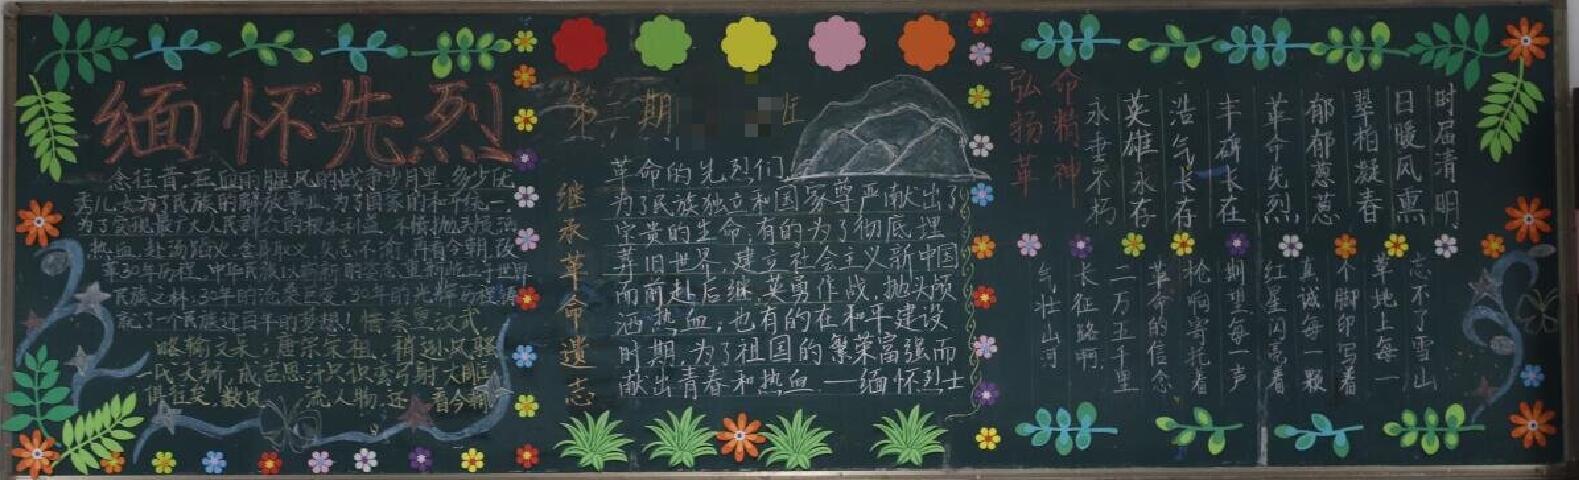 缅怀先烈
念往昔,在血雨腥风的战争岁月里,多少优
秀儿女为了民族的解放事业,为了国家的和平统一,
为了实现最广大人民群众的根本利益,不惜抛头颅洒
热血,赴汤蹈火,舍身取义,矢志不渝,再看今朝,改
革30年历程,中华民族以崭新的姿态,重新屹立于世界
民族之林,30年的沧桑巨变,30年的光辉历程,
就了一个民族近百年的梦想!惜秦皇汉武,
略输文采,唐宗宋祖,稍逊风骚
一代天骄,成吉思汗,只识弯弓射大雕
俱往矣,数风流人物,还看今朝
第二期
班
继承革命遗志
革命的先烈们
为了民族独立和国家尊严献出了
宝贵的生命,有的为了彻底埋
葬旧世界,建立社会主义新中国
而前赴后继,英勇作战,抛头颅
洒热血,也有的在和平建设
时期,为了祖国的繁荣富强而
献出青春和热血——缅怀烈士
时届清明
日暖风熏
翠柏凝春
郁郁葱葱
革命先烈,
丰碑长在
浩气长存
英雄永存
永垂不朽
命精神
弘扬革
忘不了雪山
草地上每一
个脚印写着
真诚每一颗
红星闪亮着
期望每一声
枪响寄托着
革命的信念
二万五千里
长征路啊,
气壮山河